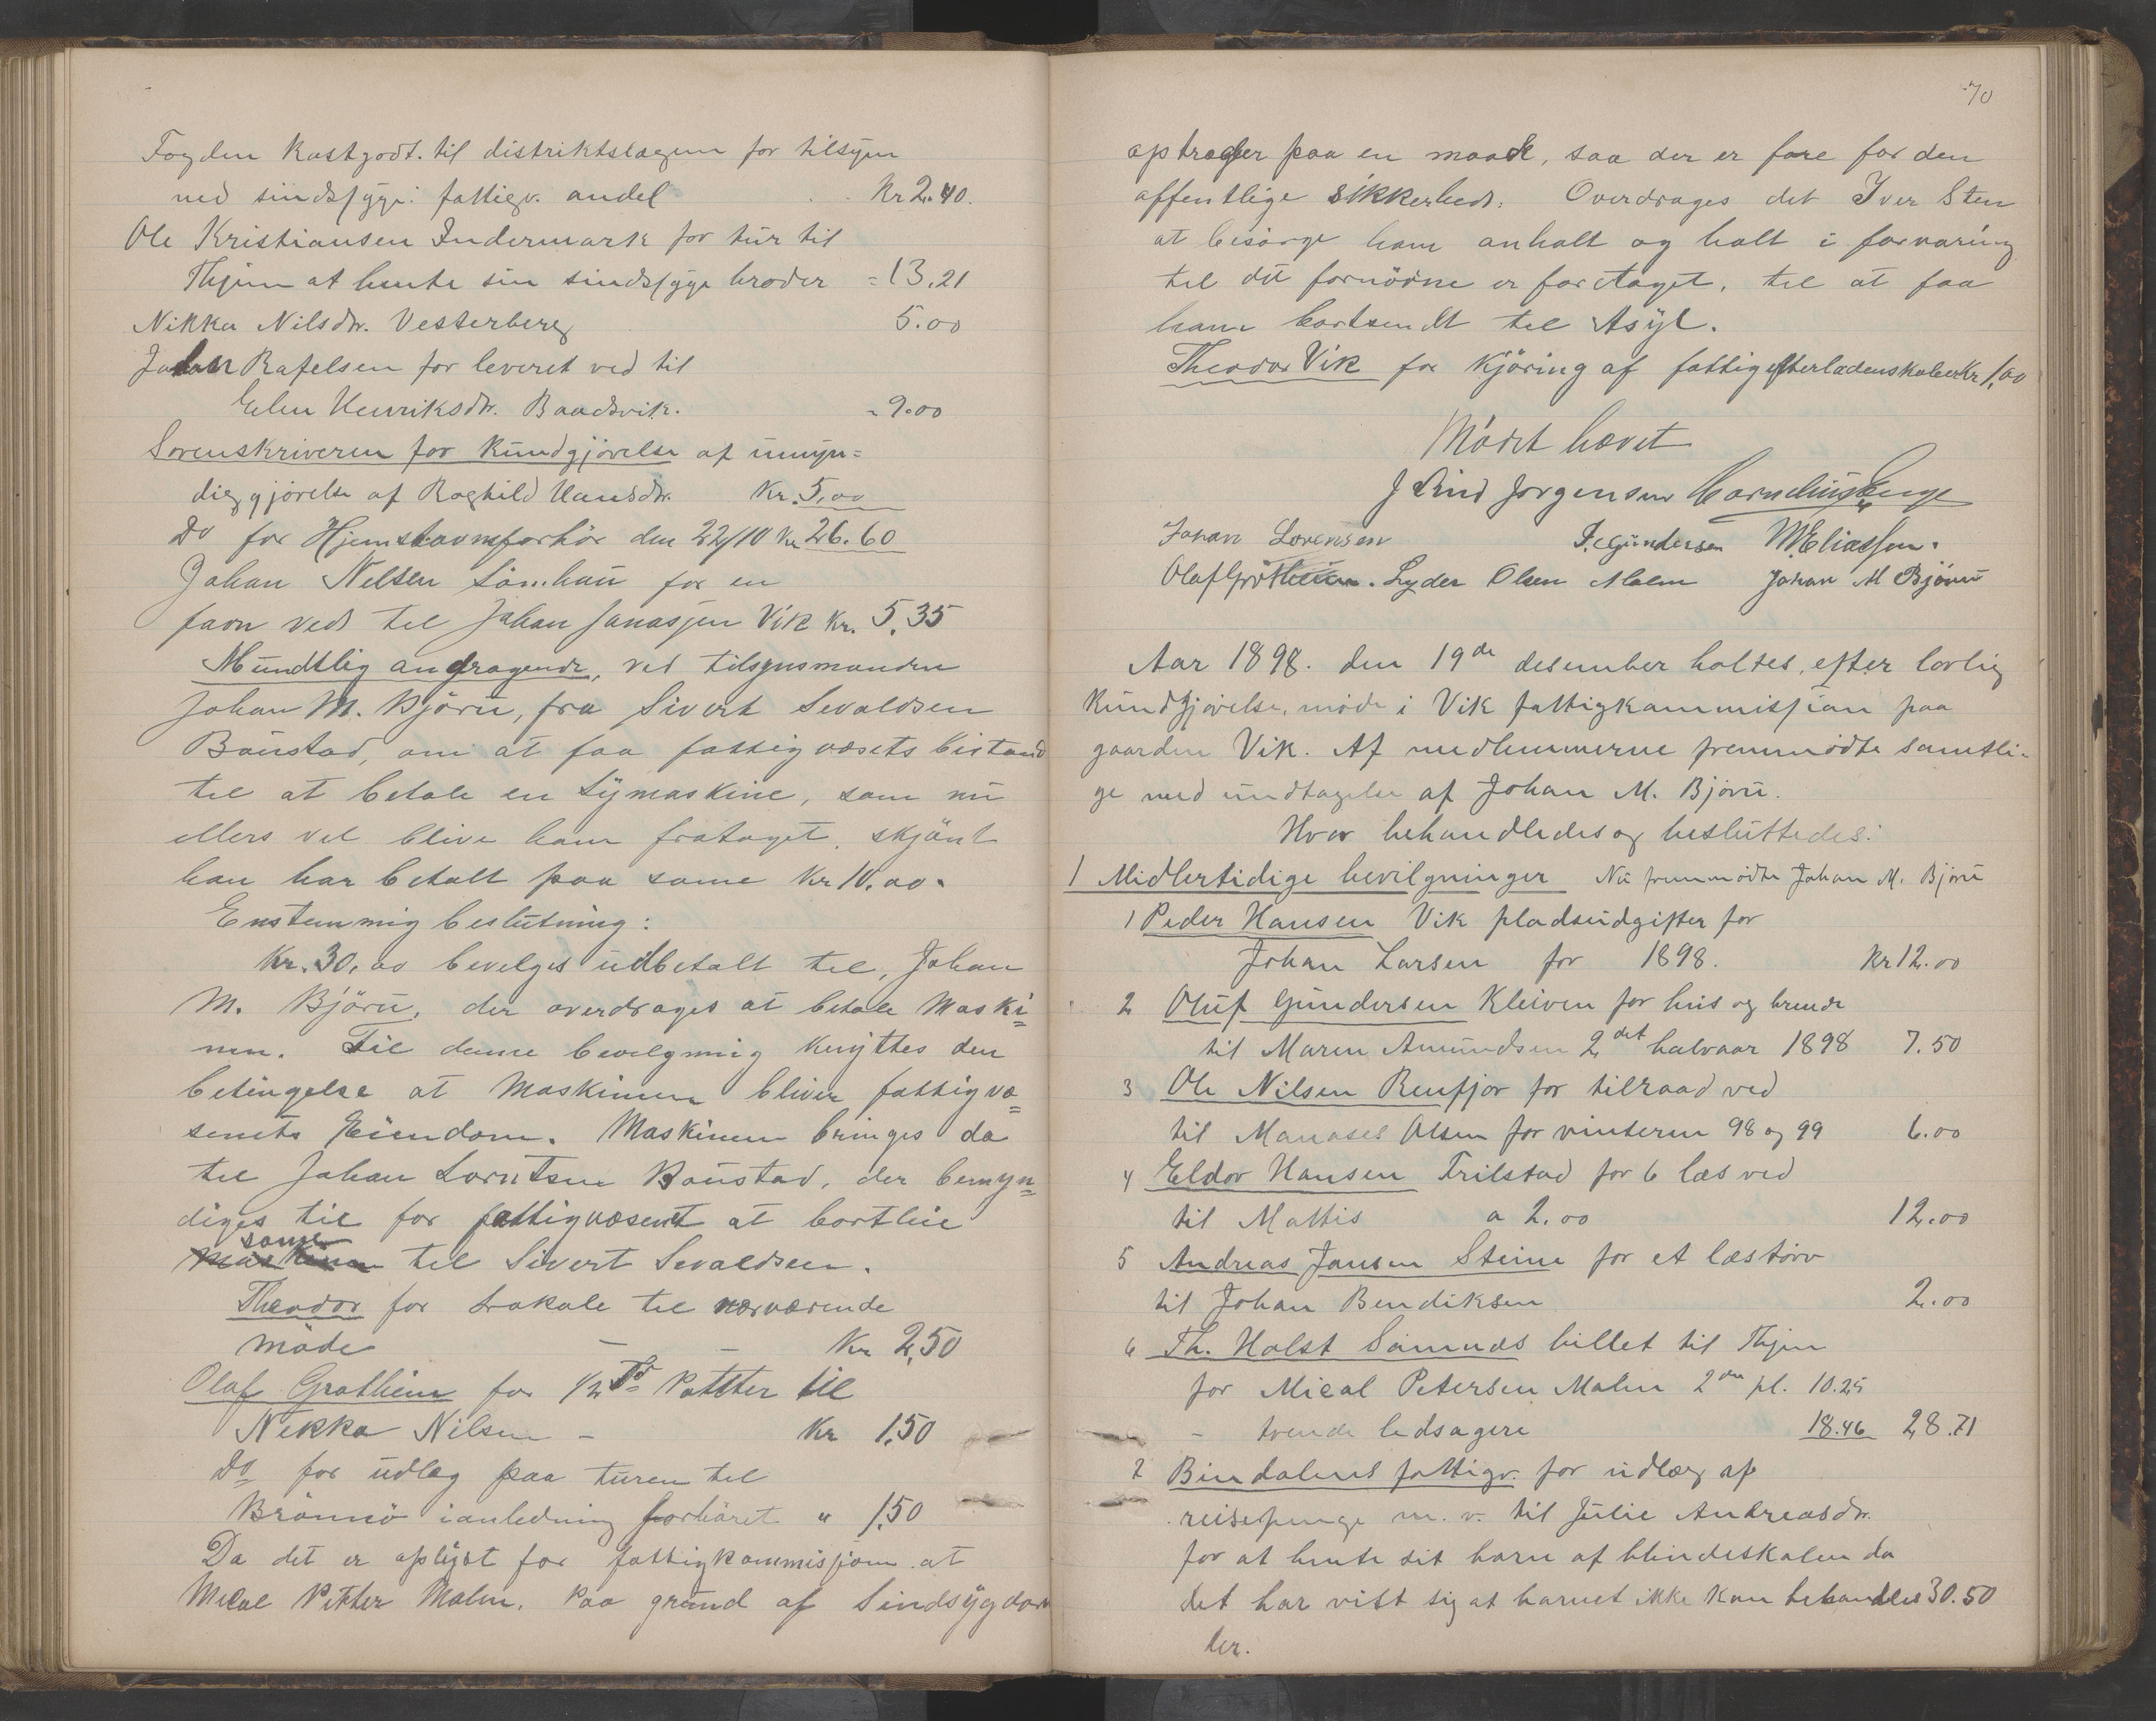 Fogden Kostgodt. til distriktslægen for tilsyn
med sindssyge: fattigv. andel Kr 2.40.
Ole Kristiansen Indermark for tur til
Thjem at hente sin sindssyge broder = 13.21
Nikka Nilsdtr. Vesterberg 5.00
Johan Rafelsen for leveret ved til
Elen Henriksdtr. Baadsvik. - 9.00
Sorenskriveren for Kundgjörelse af umyn=
diggjörelse af Raghild Hansdtr. Kr. 5,00
Do for Hjemstavnsforhör den 22/10 Kr 26.60
Johan Nilsen Sömhau for en
favn ved til Johan Janasjen Vik Kr. 5,35
Mundtlig andragende, ved tilsynsmanden
Johan M. Björu, fra Sivert Sevaldsen
Baustad, om at faa fattigvæsets bistand
til at betale en Symaskine, som nu
ellers vil blive ham frataget, skjönt
han har betalt paa same Kr 10,00.
Enstemmig beslutning:
Kr. 30,00 bevilges udbetalt til, Johan
M. Björu, der overdrages at betale Maski=
nen. Til denne bevilgning knyttes den
betingelse at Maskinen bliver fattigvæ=
senets Eiendom. Maskinen bringes da
til Johan Lorntsen Baustad, der bemyn=
diges til for fattigvæsenet at bortleie
same
Maskinen til Sivert Sevaldsen.
Theodor for Lokale til nærværende
möde - - Kr 2,50
Olaf Grøtheim for 1/2 Td Potetter til
Nikka Nilsen - Kr 1,50
Do for udlæg paa turen til
Brönnö ianledning forhöret " 1,50
Da det er oplyst for fattigkommisjonen at
Mical Petter Malm, paa grund af Sindsygdom
70
optræder paa en maade, saa der er fare for den
offentlige sikkerhed: Overdrages det Iver Sten
at besörge ham anholt og holt i forvaring
til det fornödne er foretaget, til at faa
ham bortsendt til Asyl.
Theodor Vik for Kjöring af fattigefterladenskaber Kr 1,00
Mödet hævet
J Lind Jörgensen Cornelius Lenge
Johan Lorensen F. Gundersen M Eliassen.
Olaf Grøtheim. Lyder Olsen Malm Johan M Björu
Aar 1898. den 19de desember holtes, efter lovlig
Kundgjörelse, möde i Vik fattigkommission paa
gaarden Vik. Af medlemmerne fremmödte samtli-
ge med undtagelse af Johan M. Björu.
Hvor behandledes og besluttedes:
1 Midlertidige bevilgninger Nu fremmödte Johan M. Björu
1 Peder Hansen Vik pladsudgifter for
Johan Larsen for 1898. Kr 12.00
2 Oluf Gundersen Kleiven for hus og brende
til Maren Amundsen 2det halvaar 1898 7.50
3 Ole Nilsen Renfjor for tilraad ved
til Manases Olsen for vinteren 98 og 99 6.00
4 Eldor Hansen Trilstad for 6 læs ved
til Mattis a 2.00 12.00
5 Andreas Jansen Steine for et læs törv
til Johan Bendiksen 2.00
6 Th. Holst Sömnes billet til Thjem
for Mical Petersen Malm 2den pl. 10.25
- tvende ledsagere 18.46 28.71
7 Bindalens fattigv. for udlæg af
reisepenge m. v. til Julie Andreasdtr.
for at hente sit barn af blindeskolen da
det har vist sig at barnet ikke kan behandles 30.50
der.